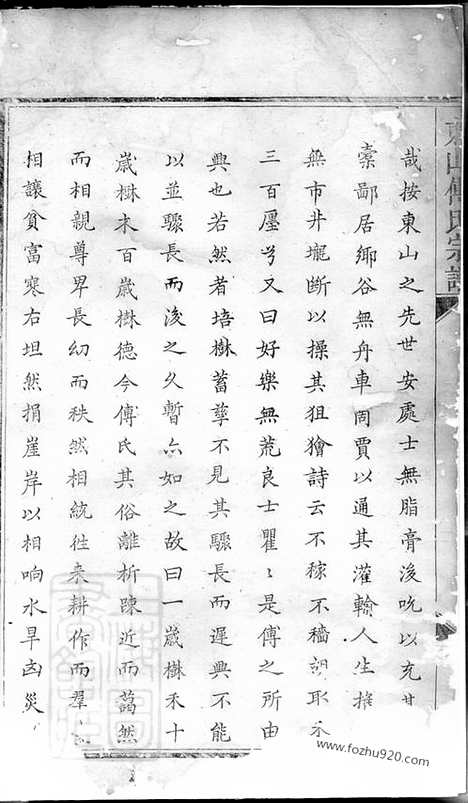 東山傅氏宗譜
哉按東山之先世安處士無脂膏浚吮以充其
橐鄙居鄉谷無舟車罔賈以通其灌輸人生
無市井壠斷以操其狙獪詩云不稼不穡胡取禾
三百廛兮又曰好樂無荒良士瞿〻是傅之所由
興也若然者培樹蓄孳不見其驟長而遲興不能
以並驟長而浚之久暫亦如之故曰一歲樹禾十
歲樹木百歲樹德今傅氏其俗離析踈近而藹然
而相親尊卑長幼而秩然相統徃来耕作而羣
相讓貧富寒右坦然捐崖岸以相响水旱凶災
www.fozhu920.com